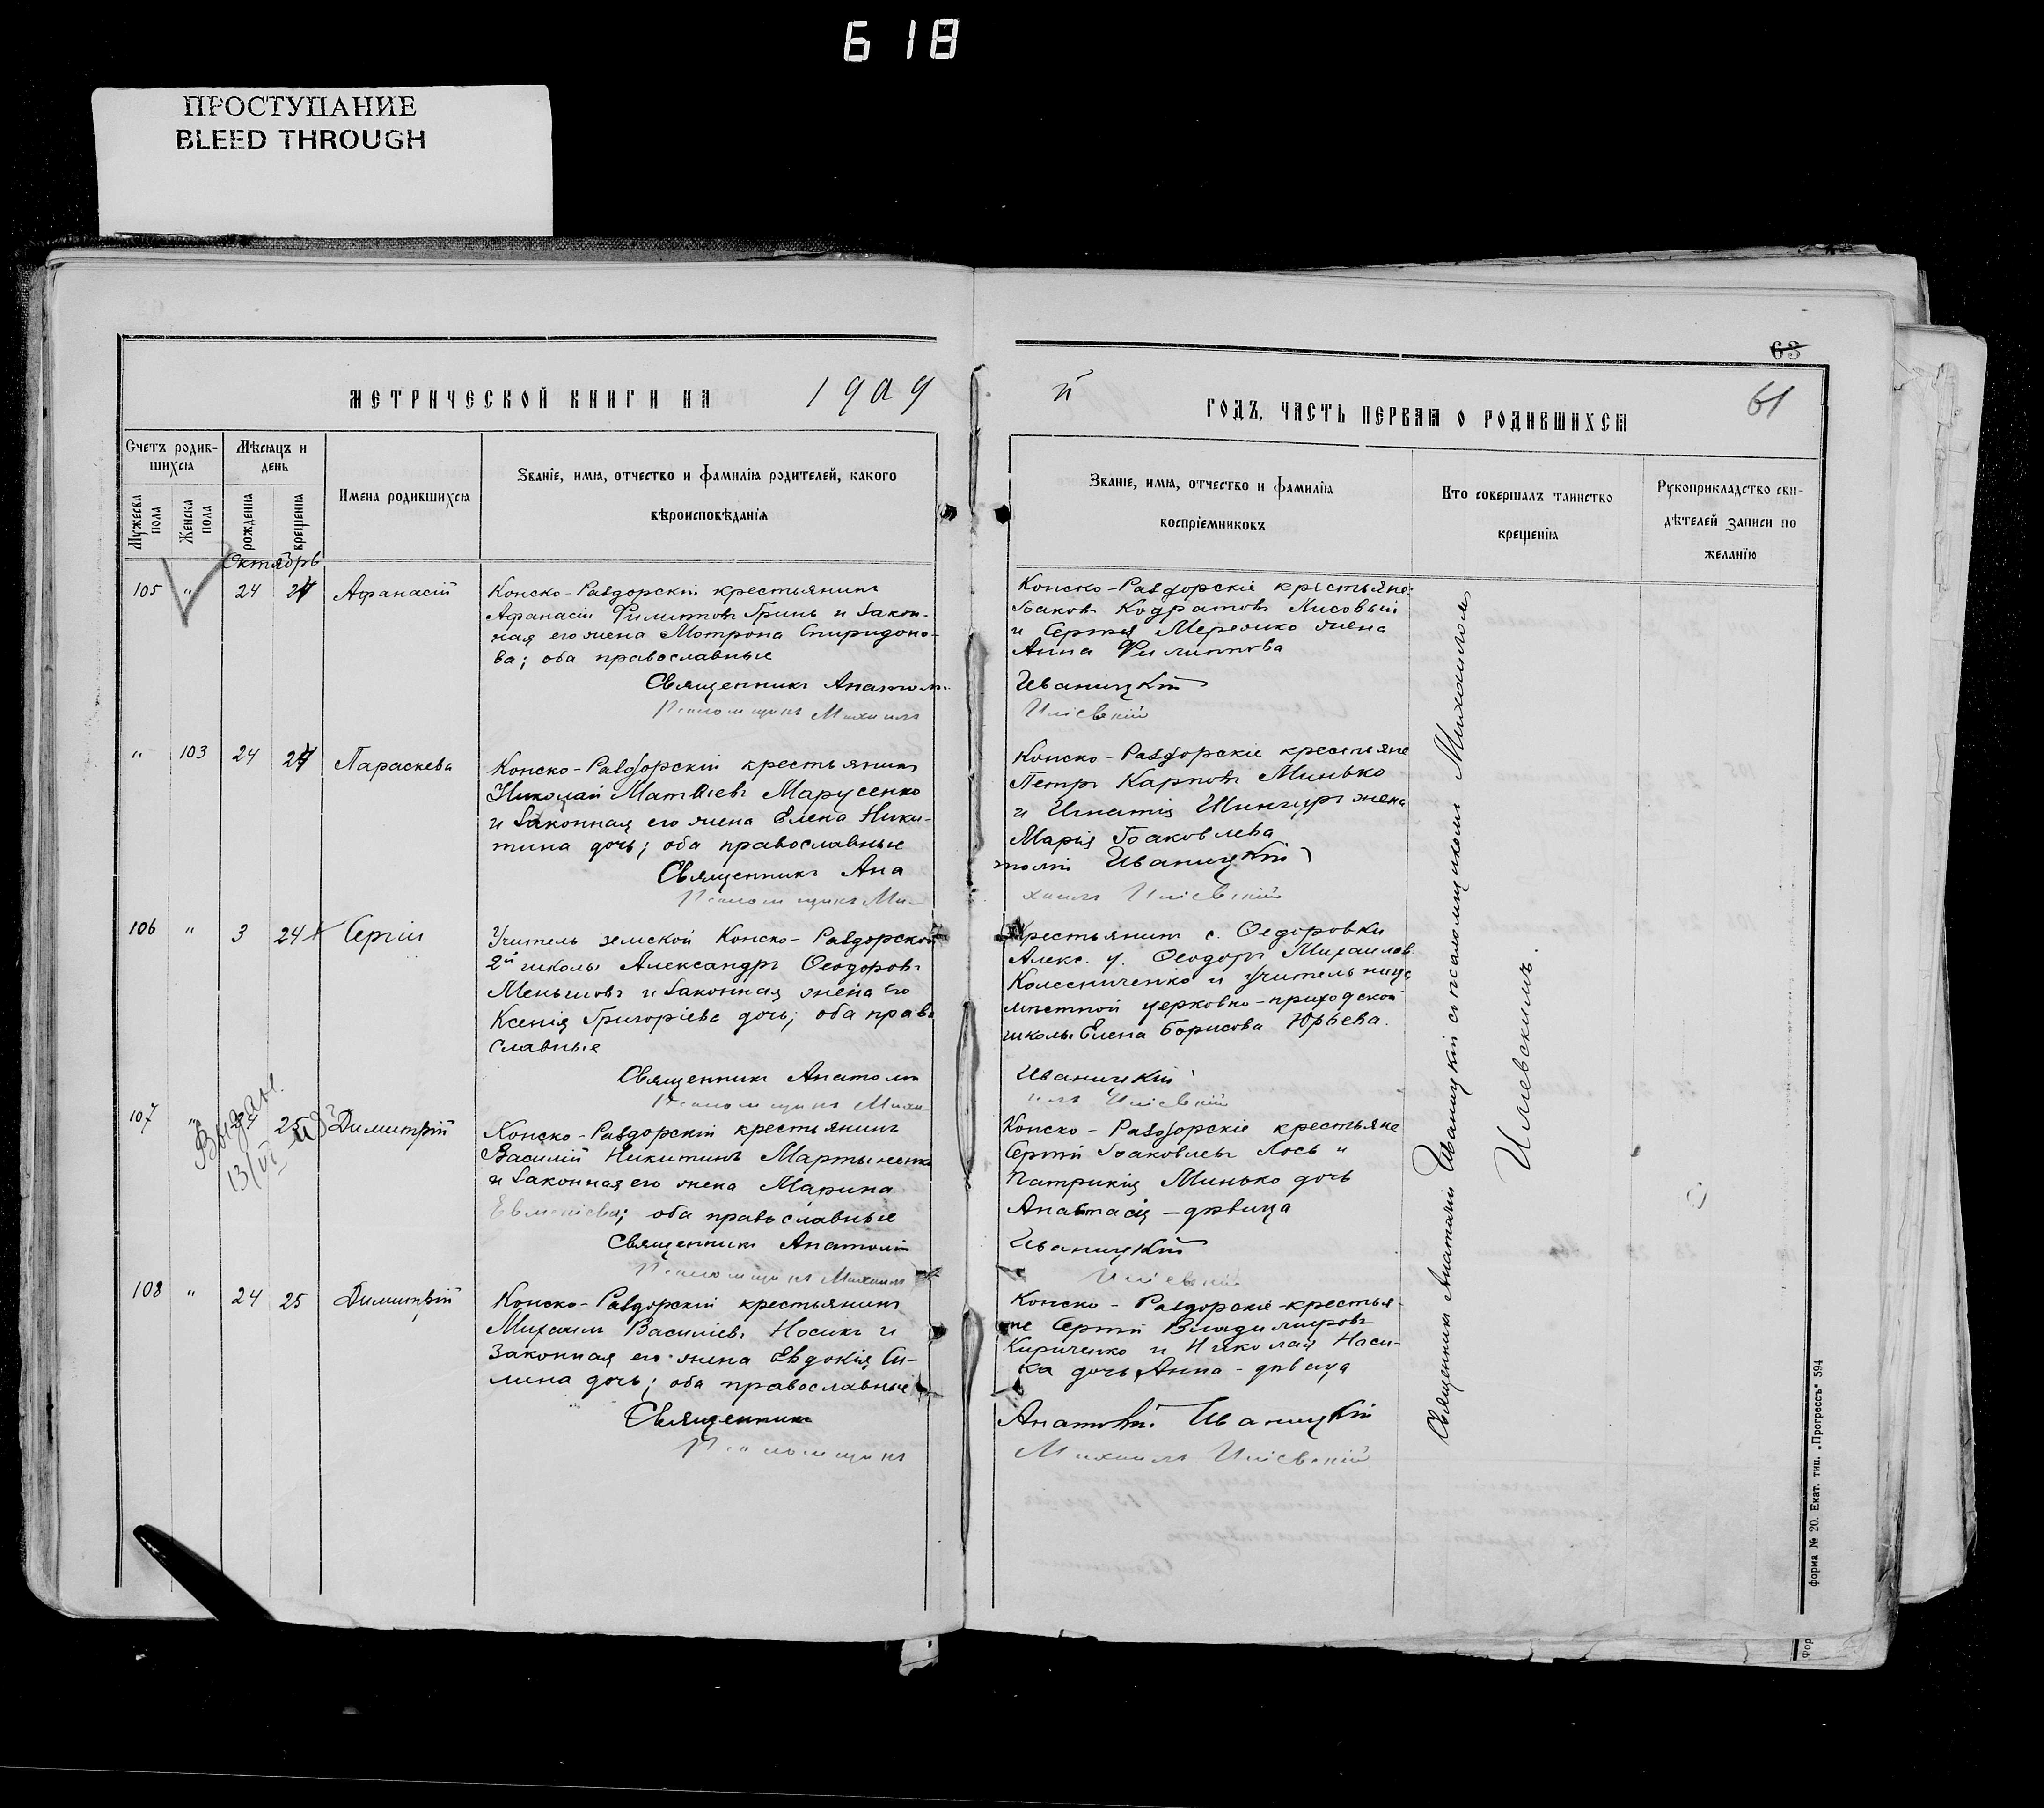 618
ПРОСТУПАНИЕ
BLEED THROUGH
63
МЕТРИЧЕСКОЙ КНИГИ НА 1909 й ГОДЪ, ЧАСТЬ ПЕРВАЯ О РОДИВШИХСЯ
61
Счетъ родив-
шихся
Мѣсяцъ и
день
Мужеска
пола
Женска
пола
рожденія
крещенія
Имена родившихся
Званіе, имя, отчество и фамилія родителей, какого
вѣроисповѣданія
Званіе, имя, отчество и фамилія
воспріемниковъ
Кто совершалъ таинство
крещенія
Рукоприкладство сви-
дѣтелей записи по
желанію
Октябрь
105 " 24 24 Афанасій
Конско-Раздорскій крестьянинъ
Афанасій Филиповъ Гринь и закон-
ная его жена Мотрона Спиридоно-
ва; оба православные
Священникъ Анатолій
Псаломщикъ Михаилъ
Конско-Раздорскіе крестьяне:
Іаковъ Кодратовъ Лисовый
и Сергія Мережко жена
Анна Филиппова
Иваницкій
Иліевскій
" 103 24 24 Параскева
Конско-Раздорскій крестьянинъ
Николай Матвіевъ Марусенко
и законная его жена Елена Ники-
тина дочь; оба православные
Священникъ Ана
Псаломщикъ Ми-
Конско-Раздорскіе крестьяне
Петръ Карповъ Минько
и Игнатія Шингуръ жена
Марія Іаковлева
толій Иваницкій
хаилъ Иліевскій
106 " 3 24 Сергій
Учитель земской Конско-Раздорской
2й школы Александръ Ѳеодоровъ
Меньшовъ и законная жена его
Ксенія Григоріева дочь; оба право
славные
Священникъ Анатолій
Псаломщикъ Миха-
Крестьянинъ с. Ѳедоровки
Алекс. у. Ѳеодоръ Михаиловъ
Колесниченко и учительница
мѣстной церковно-приходской
школы Елена Борисова Юрьева.
Иваницкій
илъ Иліевскій
107 " 25 Димитрій
Выдан.
13/VI
Конско-Раздорскій крестьянинъ
Василій Никитинъ Мартыненко
и законная его жена Марина
Евменіева; оба православные
Священникъ Анатолій
Псаломщикъ Михаилъ
Конско-Раздорскіе крестьяне
Сергій Іаковлевъ Лось и
Патрикія Минько дочь
Анастасія - дѣвица
Иваницкій
Иліевскій
108 " 24 25 Димитрій
Конско-Раздорскій крестьянинъ
Михаилъ Василіевъ Носикъ и
законная его жена Евдокія Си-
лина дочь; оба православные
Священникъ
Псаломщикъ
Конско-Раздорскіе-крестья-
не Сергій Владиміровъ
Кириченко и Николая Наси-
ка дочь Анна - дѣвица
Анатолій Иваницкій
Михаилъ Иліевскій
Священникъ Анатолій Иваницкій съ псаломщикомъ Михаиломъ
Илиевскимъ.
форма № 20. Екат. тип. „Прогрессъ" 594